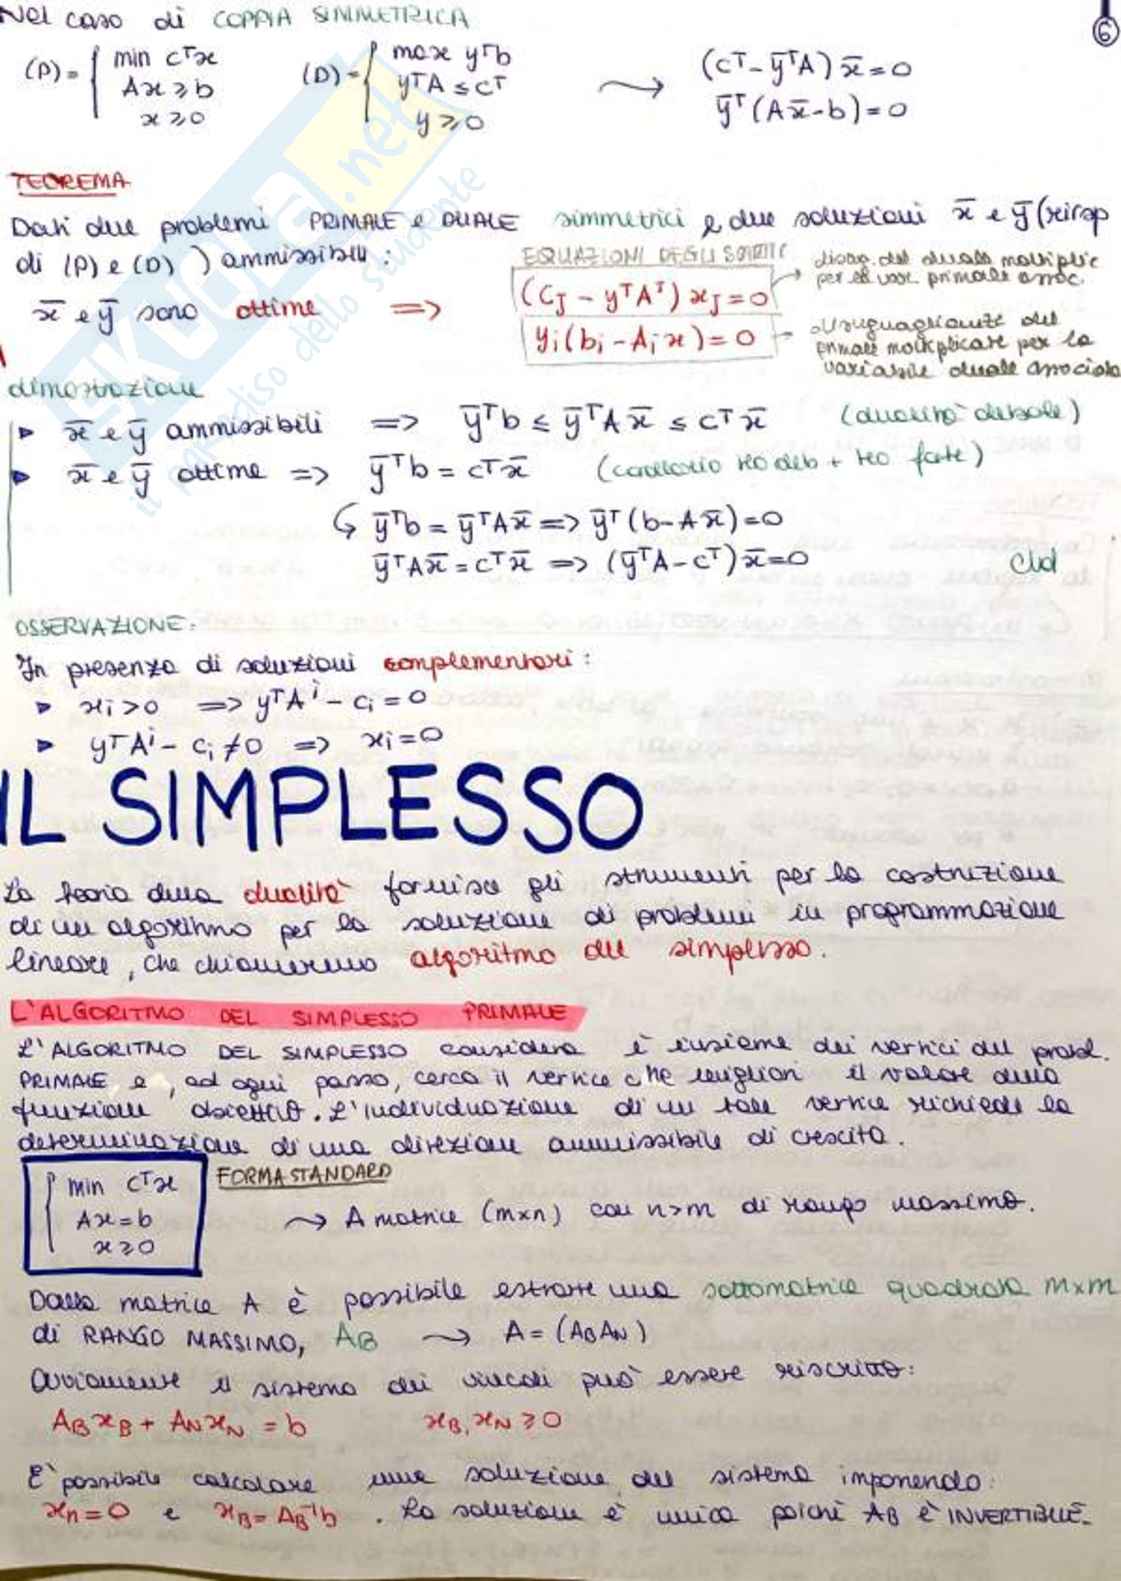 Nel caso di COPPIA SIMMETRICA
6
(P) = { min cᵀx
Ax ≥ b
x ≥ 0
(D) = { max yᵀb
yᵀA ≤ cᵀ
y ≥ 0
⇝ (cᵀ - ȳᵀA) x̄ = 0
ȳᵀ(Ax̄ - b) = 0
TEOREMA
Dati due problemi PRIMALE e DUALE simmetrici e due soluzioni x̄ e ȳ (risp
di (P) e (D)) ammissibili:
x̄ e ȳ sono ottime ⇒
EQUAZIONI DEGLI
(cⱼ - yᵀAᴶ) xⱼ = 0
yᵢ(bᵢ - Aᵢx) = 0
disag. del duale moltiplic
per la var. primale assoc.
disuguaglianze del
primale moltiplicate per la
variabile duale associata
dimostrazione
▸ x̄ e ȳ ammissibili ⇒ ȳᵀb ≤ ȳᵀAx̄ ≤ cᵀx̄ (dualità debole)
▸ x̄ e ȳ ottime ⇒ ȳᵀb = cᵀx̄ (corollario teo deb + teo forte)
↳ ȳᵀb = ȳᵀAx̄ ⇒ ȳᵀ(b - Ax̄) = 0
ȳᵀAx̄ = cᵀx̄ ⇒ (ȳᵀA - cᵀ)x̄ = 0
cvd
OSSERVAZIONE:
In presenza di soluzioni complementari:
▸ xᵢ > 0 ⇒ yᵀAⁱ - cᵢ = 0
▸ yᵀAⁱ - cᵢ ≠ 0 ⇒ xᵢ = 0
IL SIMPLESSO
La teoria della dualità fornisce gli strumenti per la costruzione
di un algoritmo per la soluzione di problemi in programmazione
lineare, che chiameremo algoritmo del simplesso.
L'ALGORITMO DEL SIMPLESSO PRIMALE
L'ALGORITMO DEL SIMPLESSO considera l'insieme dei vertici del probl.
PRIMALE e, ad ogni passo, cerca il vertice che migliori il valore della
funzione obiettivo. L'individuazione di un tale vertice richiede la
determinazione di una direzione ammissibile di crescita.
{ min cᵀx
Ax = b
x ≥ 0
FORMA STANDARD
⇝ A matrice (m×n) con n>m di rango massimo.
Dalla matrice A è possibile estrarre una sottomatrice quadrata m×m
di RANGO MASSIMO, A_B ⇝ A = (A_B A_N)
Ovviamente il sistema dei vincoli può essere riscritto:
A_B x_B + A_N x_N = b x_B, x_N ≥ 0
E' possibile calcolare una soluzione del sistema imponendo:
x_n = 0 e x_B = A_B⁻¹b . La soluzione è unica poiché A_B è INVERTIBILE.
SKUOLA.net
il paradiso dello studente